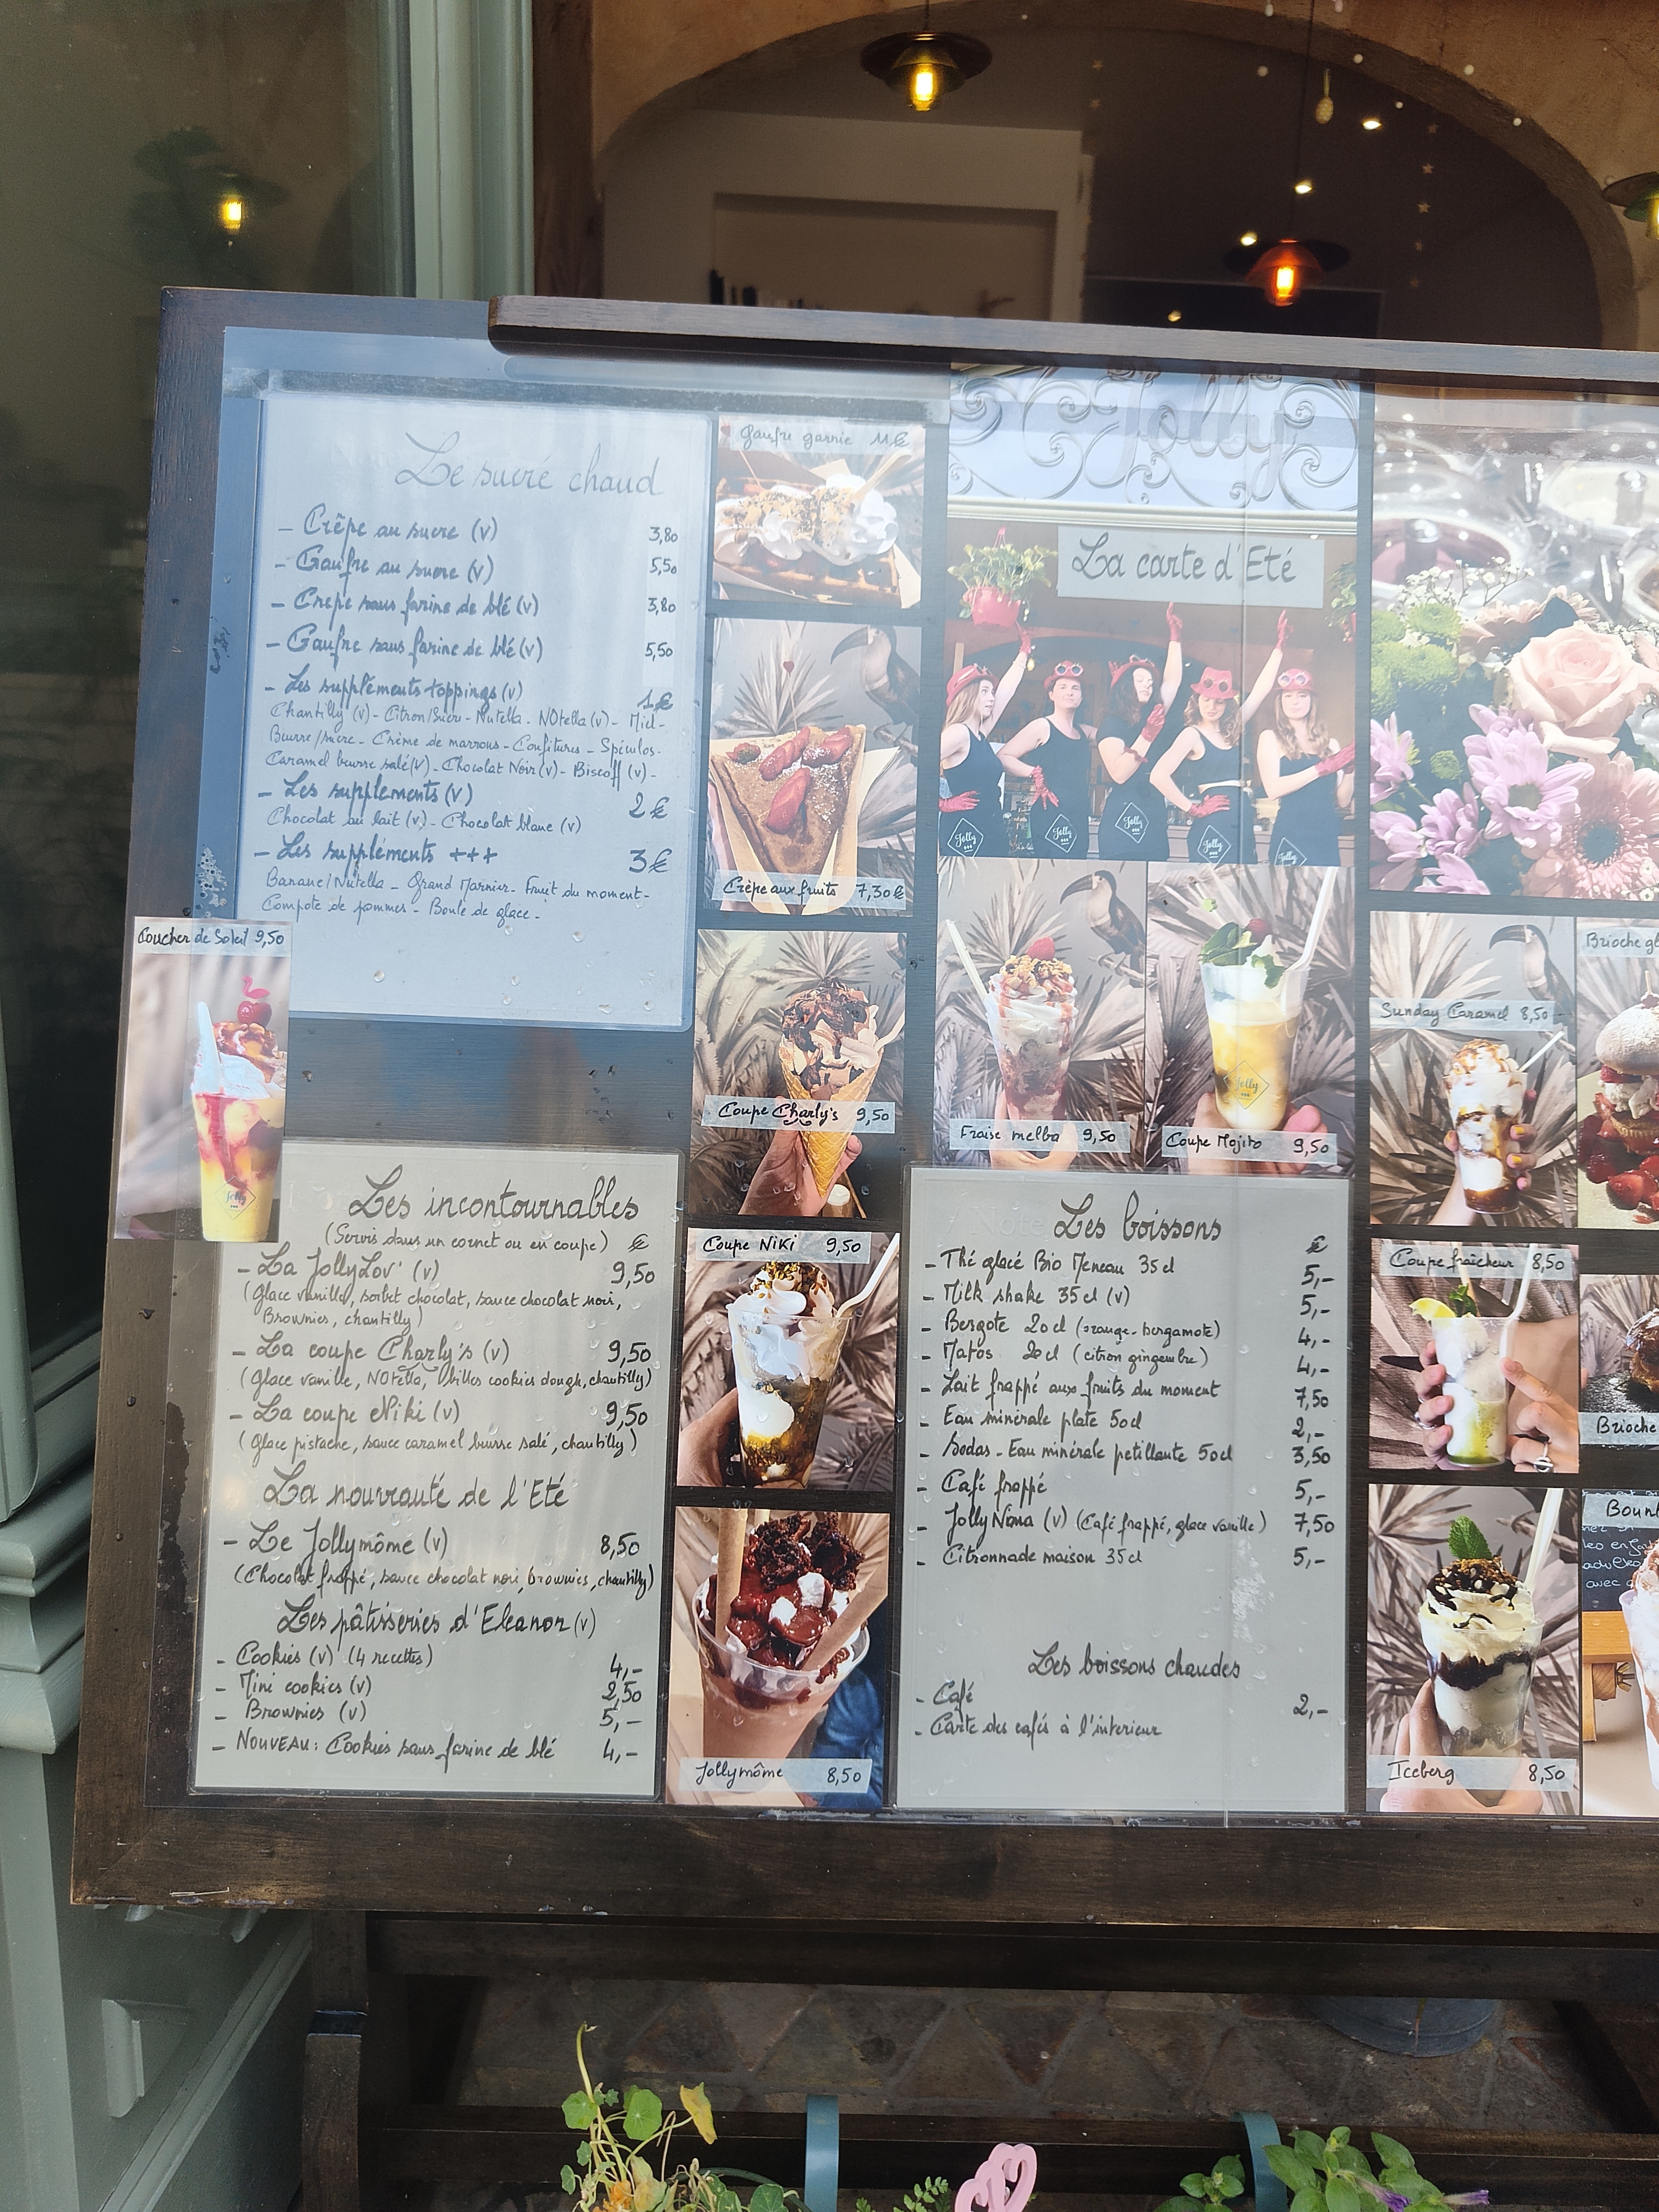 Le sucré chaud
- Crêpe au sucre (v) 3,80
- Gaufre au sucre (v) 5,50
- Crepe sans farine de blé (v) 3,80
- Gaufre sans farine de blé (v) 5,50
- Les suppléments toppings (v) 1€
Chantilly (v) - Citron/Sucre - Nutella - NOtella (v) - Miel -
Beurre/sucre - Crème de marrons - Confitures - Spéculos -
Caramel beurre salé (v) - Chocolat Noir (v) - Biscoff (v) -
- Les suppléments (v) 2€
Chocolat au lait (v) - Chocolat blanc (v)
- Les suppléments +++ 3€
Banane/Nutella - Grand Marnier - Fruit du moment -
Compote de pommes - Boule de glace -
Coucher de Soleil 9,50
Jolly
Les incontournables
(Servis dans un cornet ou en coupe) €
- La JollyLov' (v) 9,50
(Glace vanille, sorbet chocolat, sauce chocolat noir,
Brownies, chantilly)
- La coupe Charly's (v) 9,50
(Glace vanille, NOtella, billes cookies dough, chantilly)
- La coupe Niki (v) 9,50
(Glace pistache, sauce caramel beurre salé, chantilly)
La nouveauté de l'Eté
- Le Jollymôme (v) 8,50
(Chocolat frappé, sauce chocolat noir, brownies, chantilly)
Les pâtisseries d'Eleanor (v)
- Cookies (v) (4 recettes) 4,-
- Mini cookies (v) 2,50
- Brownies (v) 5,-
- NOUVEAU: Cookies sans farine de blé 4,-
Gaufre garnie 11€
Crêpe aux fruits 7,30€
Coupe Charly's 9,50
Coupe NiKi 9,50
Jollymôme 8,50
Jolly
La carte d'Eté
Jolly
Jolly
Jolly
Jolly
Jolly
Jolly
Fraise melba 9,50
Coupe Mojito 9,50
Les boissons
€
- Thé glacé Bio Meneau 35cl 5,-
- Milk shake 35cl (v) 5,-
- Bergote 20cl (orange-bergamote) 4,-
- Matos 20cl (citron gingembre) 4,-
- Lait frappé aux fruits du moment 7,50
- Eau minérale plate 50cl 2,-
- Sodas - Eau minérale petillante 50cl 3,50
- Café frappé 5,-
- JollyNana (v) (Café frappé, glace vanille) 7,50
- Citronnade maison 35cl 5,-
Les boissons chaudes
- Café 2,-
- Carte des cafés à l'interieur
Sunday Caramel 8,50
Coupe fraîcheur 8,50
Iceberg 8,50
Brioche
Brioche
avec